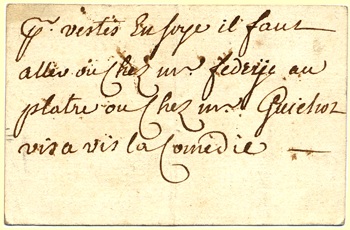 pr. vestes En soye il faut
aller ou Chez mr. federije au
platre ou Chez mr. Guichot
vis a vis la Comedie —